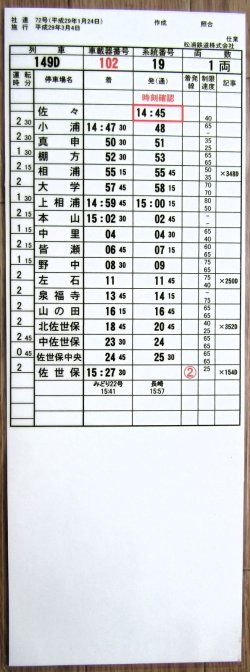 社達 72号(平成29年1月24日) 作成 照合
施行 平成29年3月4日
仕業
松浦鉄道株式会社
列車 車載器番号 系統番号 両数
149D 102 19 1両
運転時分 停車場名 着 発(通) 着発線 制限速度 記事
時刻確認
佐々 14:45 40
2 30 小浦 14:47 30 48 65
2 真申 50 51 35 25
棚方 52 53 65
2 15 相浦 55 15 55 45 50 35 ×348D
大学 57 45 58
2 上相浦 14:59 45 15:00 15
2 15 本山 15:02 30 02 45
中里 04 04 30
2 15 皆瀬 06 45 07 15
野中 08 30 09
2 左石 11 11 45 ×250D
2 泉福寺 13 45 14 15
山の田 16 15 16 45
北佐世保 18 45 20 45 ×352D
2 45 中佐世保 23 30 24
0 45 佐世保中央 24 45 25 30
2 佐世保 15:27 30 ② 25 ×154D
みどり22号 長崎
15:41 15:57